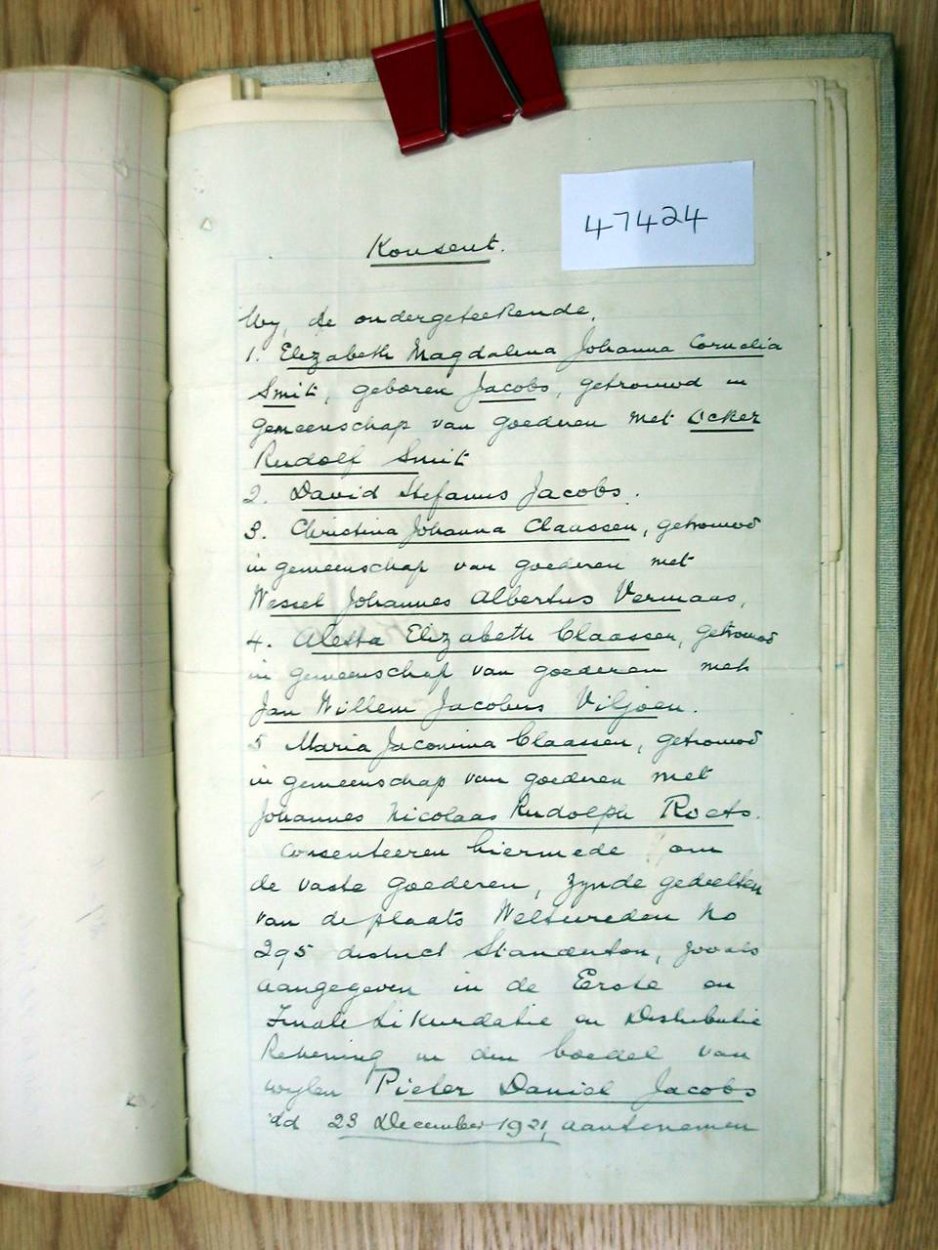 47424
Konsent.
Wy, de ondergeteekende,
1. Elizabeth Magdalena Johanna Cornelia
Smit, geboren Jacobs, getrouwd in
gemeenschap van goederen met Ocker
Rudolf Smit
2. David Stefanus Jacobs.
3. Christina Johanna Claassen, getrouwd
in gemeenschap van goederen met
Wessel Johannes Albertus Vermaas,
4. Aletta Elizabeth Claassen, getrouwd
in gemeenschap van goederen met
Jan Willem Jacobus Viljoen.
5 Maria Jacomina Claassen, getrouwd
in gemeenschap van goederen met
Johannes Nicolaas Rudolph Roets.
consenteeren hiermede om
de vaste goederen, zynde gedeelten
van de plaats Weltevreden No
295 district Standerton, zooals
aangegeven in de Eerste en
Finale Likwidatie en Distributie
Rekening in den boedel van
wylen Pieter Daniel Jacobs
dd 23 December 1921, aantenemen